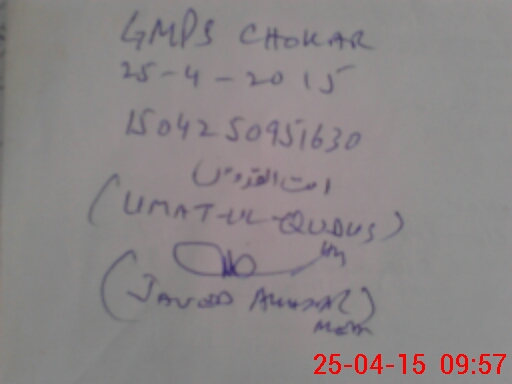 GMPS CHOKAR
25-4-2015
1504250951630
امت القدوس
(UMAT-UL-QUDUS)
(JAVED
25-04-15 09:57